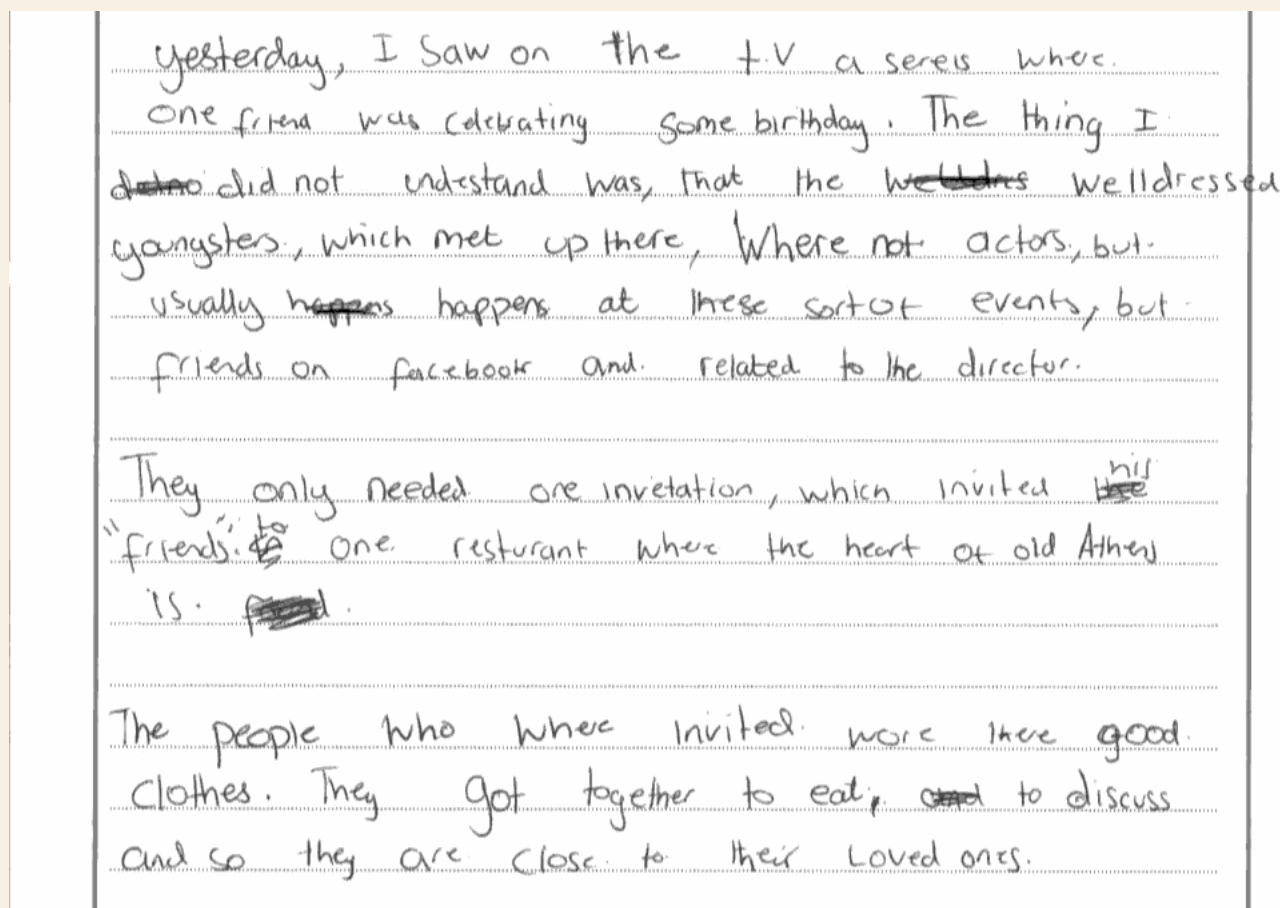 yesterday, I Saw on the t.V a sereis where.
one friend was celebrating some birthday. The thing I
did not undestand was, that the welldressed
youngsters, which met up there, Where not actors, but.
usually happens at these sort of events, but
friends on facebook and. related to the director.
They only needed one invetation, which invited his
"friends". to one. resturant where the heart of old Athens
is.
The people who where invited. wore there good.
Clothes. They got together to eat, to discuss
and so they are close. to their Loved ones.